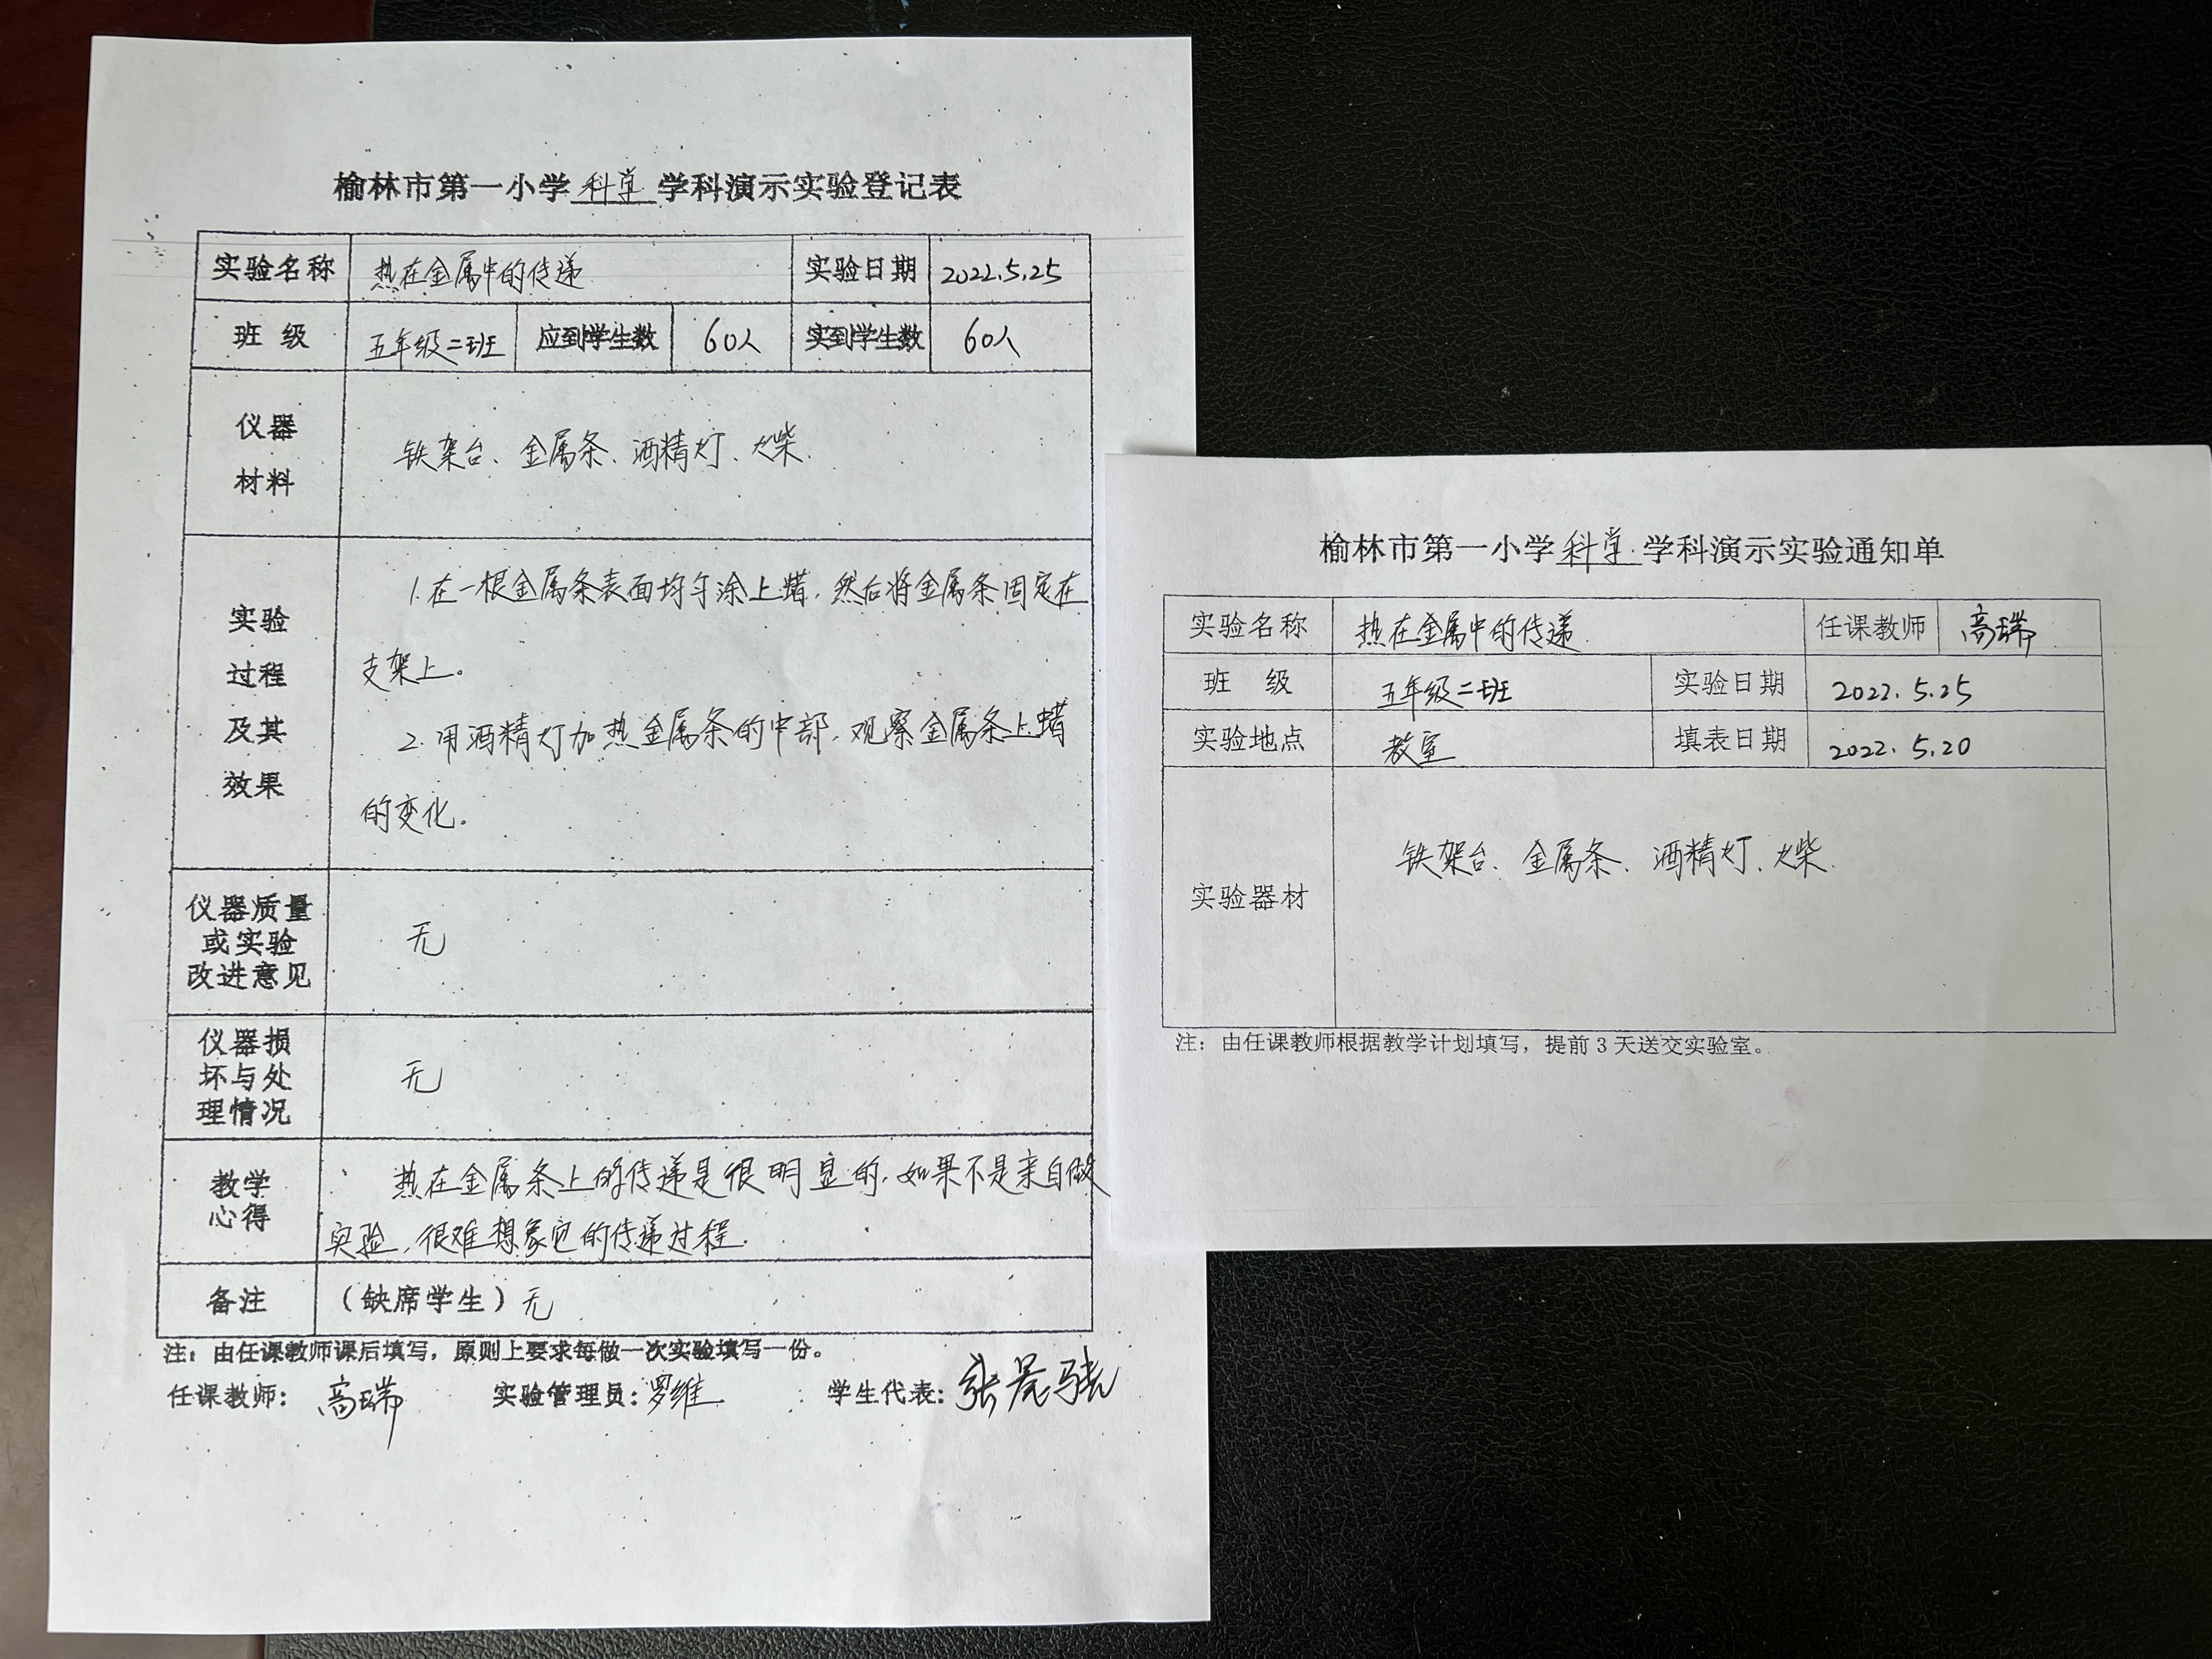 榆林市第一小学科学学科演示实验登记表
实验名称 热在金属中的传递 实验日期 2022.5.25
班 级 五年级二班 应到学生数 60人 实到学生数 60人
仪器
材料
铁架台、金属条、酒精灯、火柴.
实验
过程
及其
效果
1.在一根金属条表面均匀涂上蜡,然后将金属条固定在
支架上。
2.用酒精灯加热金属条的中部,观察金属条上蜡
的变化。
仪器质量
或实验
改进意见
无
仪器损
坏与处
理情况
无
教学
心得
热在金属条上的传递是很明显的,如果不是亲自做
实验,很难想象它的传递过程.
备注 (缺席学生)无
注:由任课教师课后填写,原则上要求每做一次实验填写一份。
任课教师:高瑞 实验管理员:罗维 学生代表:张
榆林市第一小学科学学科演示实验通知单
实验名称 热在金属中的传递 任课教师 高瑞
班 级 五年级二班 实验日期 2022.5.25
实验地点 教室 填表日期 2022.5.20
实验器材 铁架台、金属条、酒精灯、火柴.
注:由任课教师根据教学计划填写,提前3天送交实验室。